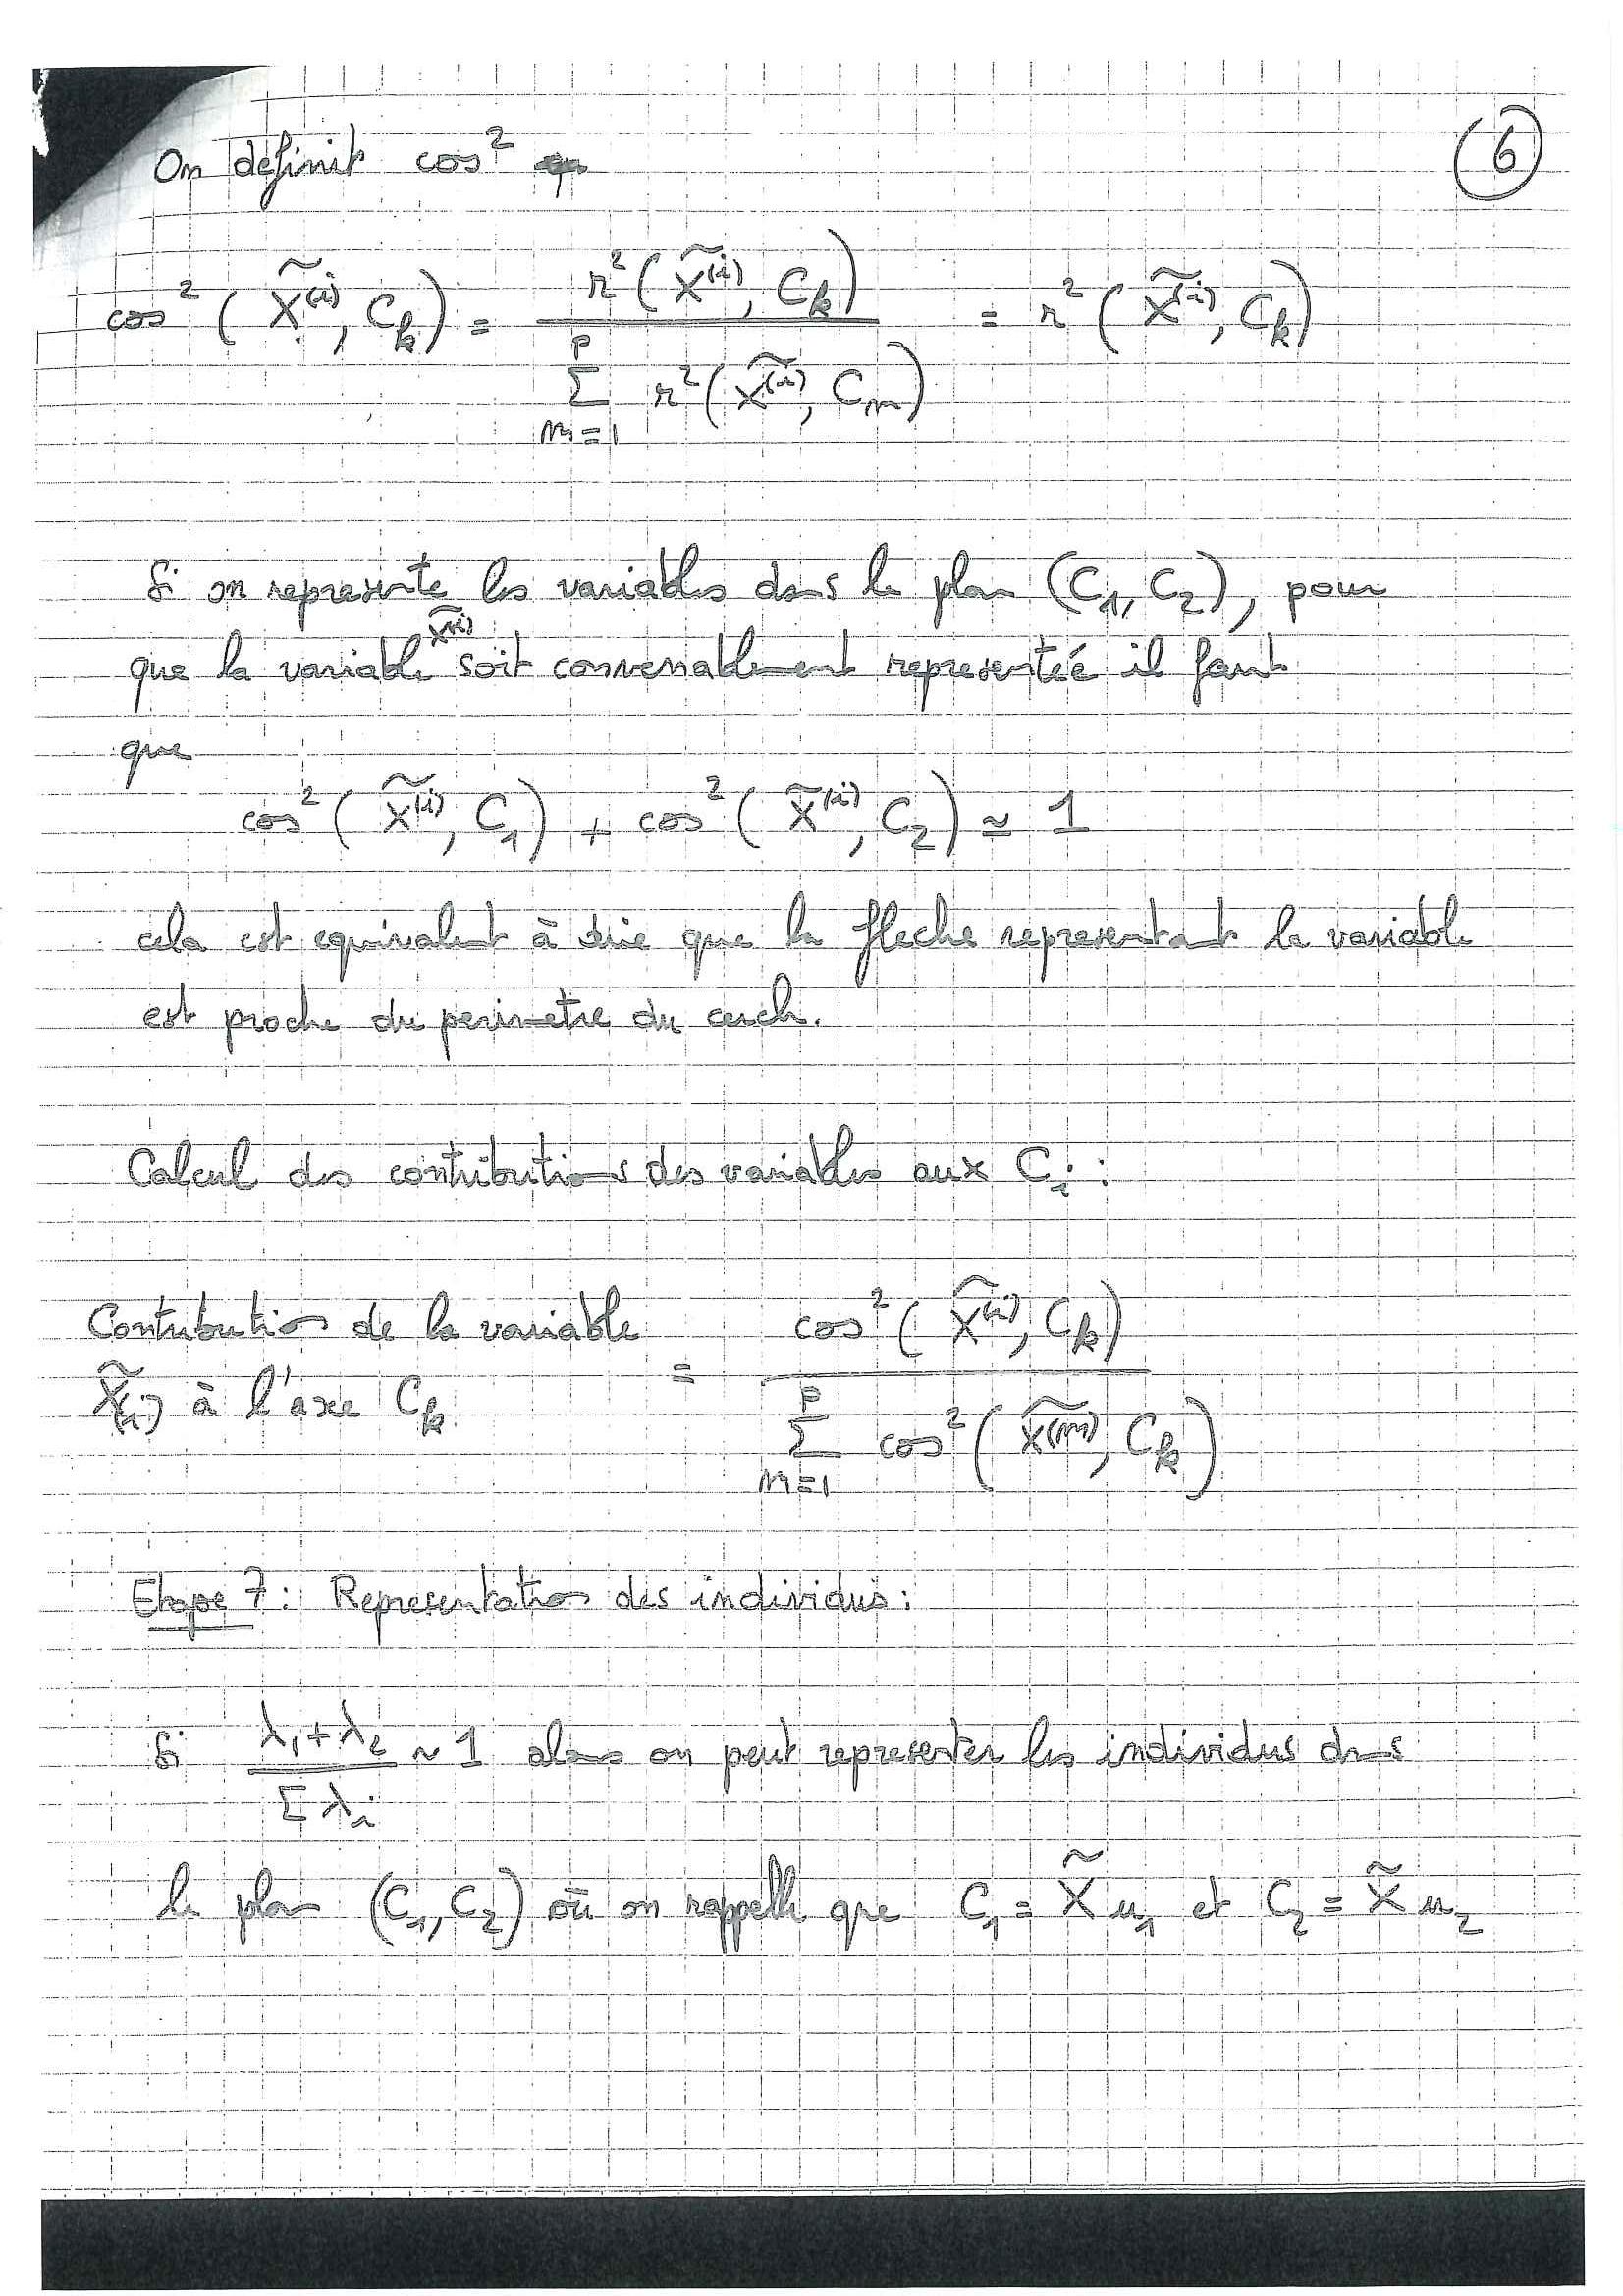 On definit cos²
(6)
cos² ( X̃⁽ⁱ⁾, C_k ) = r² ( X̃⁽ⁱ⁾, C_k ) / Σ_{m=1}^{p} r² ( X̃⁽ⁱ⁾, C_m ) = r² ( X̃⁽ⁱ⁾, C_k )
Si on represente les variables dans le plan (C₁, C₂), pour
que la variable X̃⁽ⁱ⁾ soit convenablement representéé il faut
que
cos² ( X̃⁽ⁱ⁾, C₁ ) + cos² ( X̃⁽ⁱ⁾, C₂ ) ≃ 1
cela est equivalent à dire que la fleche representant la variable
est proche du perimetre du cercle.
Calcul des contributions des variables aux C_i :
Contribution de la variable
X̃₍ᵢ₎ à l'axe C_k = cos² ( X̃⁽ⁱ⁾, C_k ) / Σ_{m=1}^{p} cos² ( X̃⁽ᵐ⁾, C_k )
Etape 7 : Representation des individus :
Si (λ₁ + λ₂) / Σ λ_i ~ 1 alors on peut representer les individus dans
le plan (C₁, C₂) où on rappelle que C₁ = X̃ u₁ et C₂ = X̃ u₂